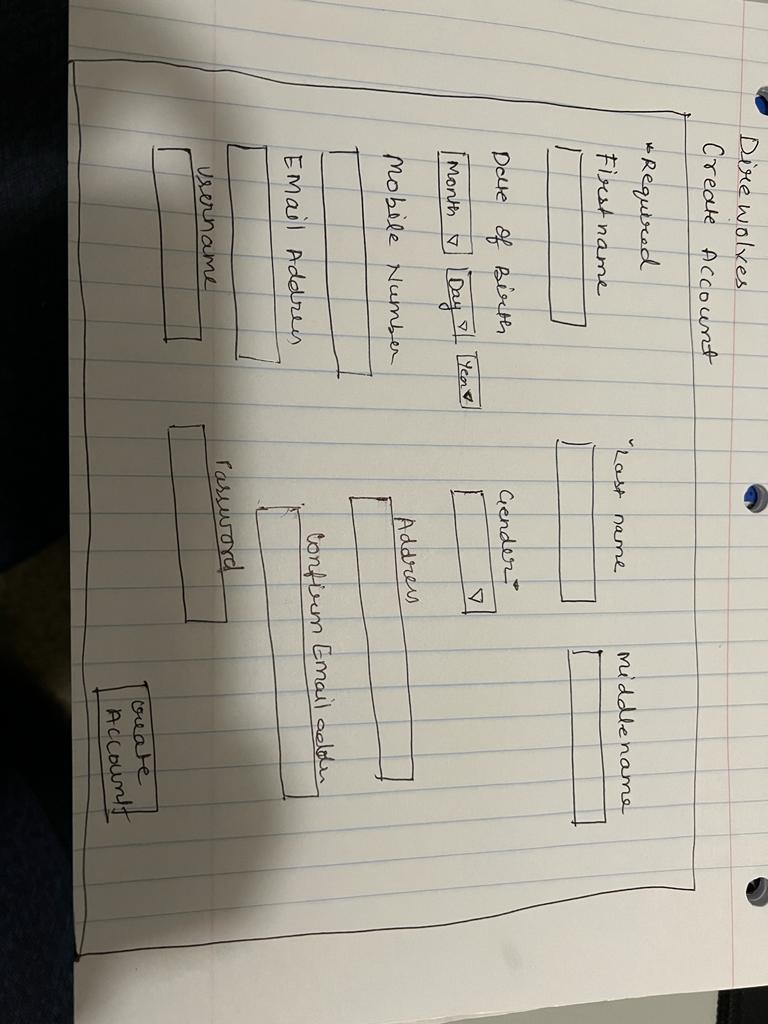 Direwolves
Create Account
*Required
First name
*Last name
Middle name
Date of Birth
Gender*
Month
Day
Year
Mobile Number
Address
EMail Address
Confirm Email
Username
Password
Create
Account